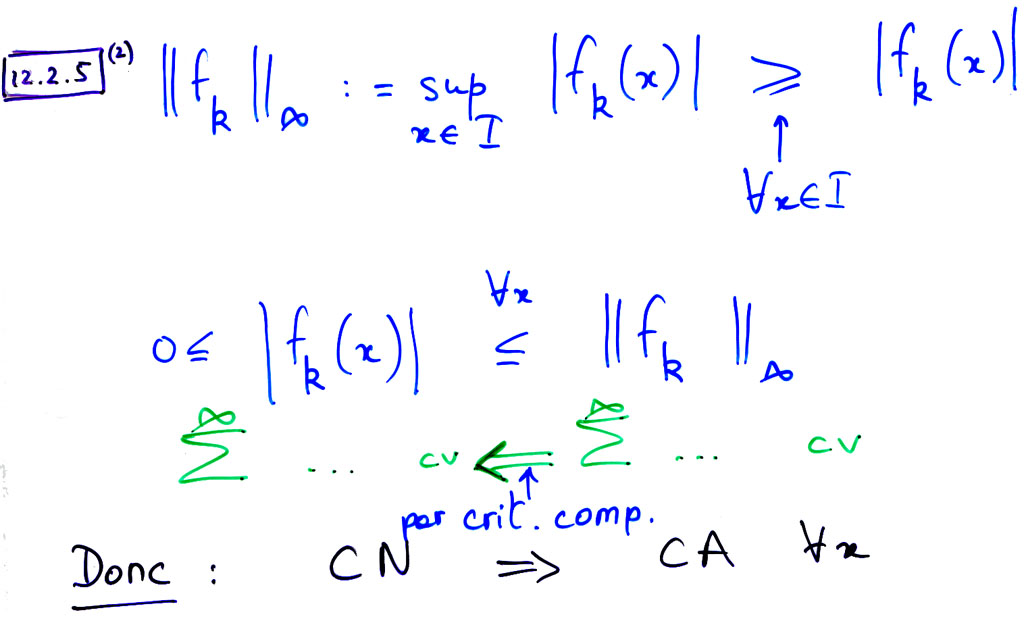 12.2.5 (2) ‖f_k‖_∞ := sup_{x∈I} |f_k(x)| ≥ |f_k(x)|
↑
∀x∈I
∀x
0 ≤ |f_k(x)| ≤ ‖f_k‖_∞
∑^∞ ... cv ⇐ ∑^∞ ... cv
↑
par crit. comp.
Donc : CN ⇒ CA ∀x